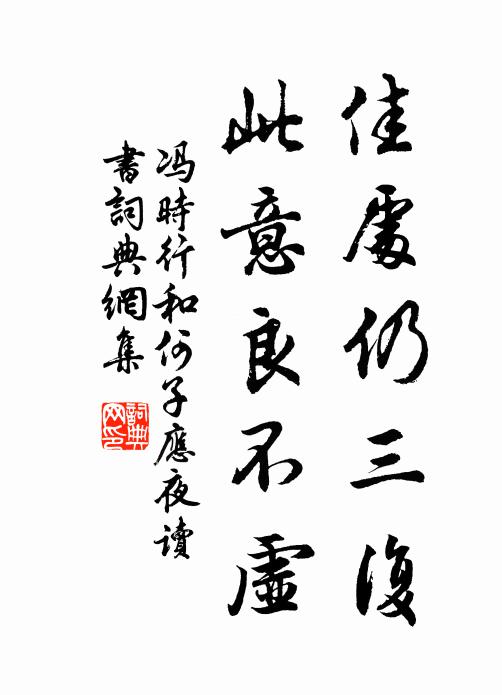 佳處仍三復
此意良不虛
冯時行和何子應夜讀
書詞典網集
詞典
网印